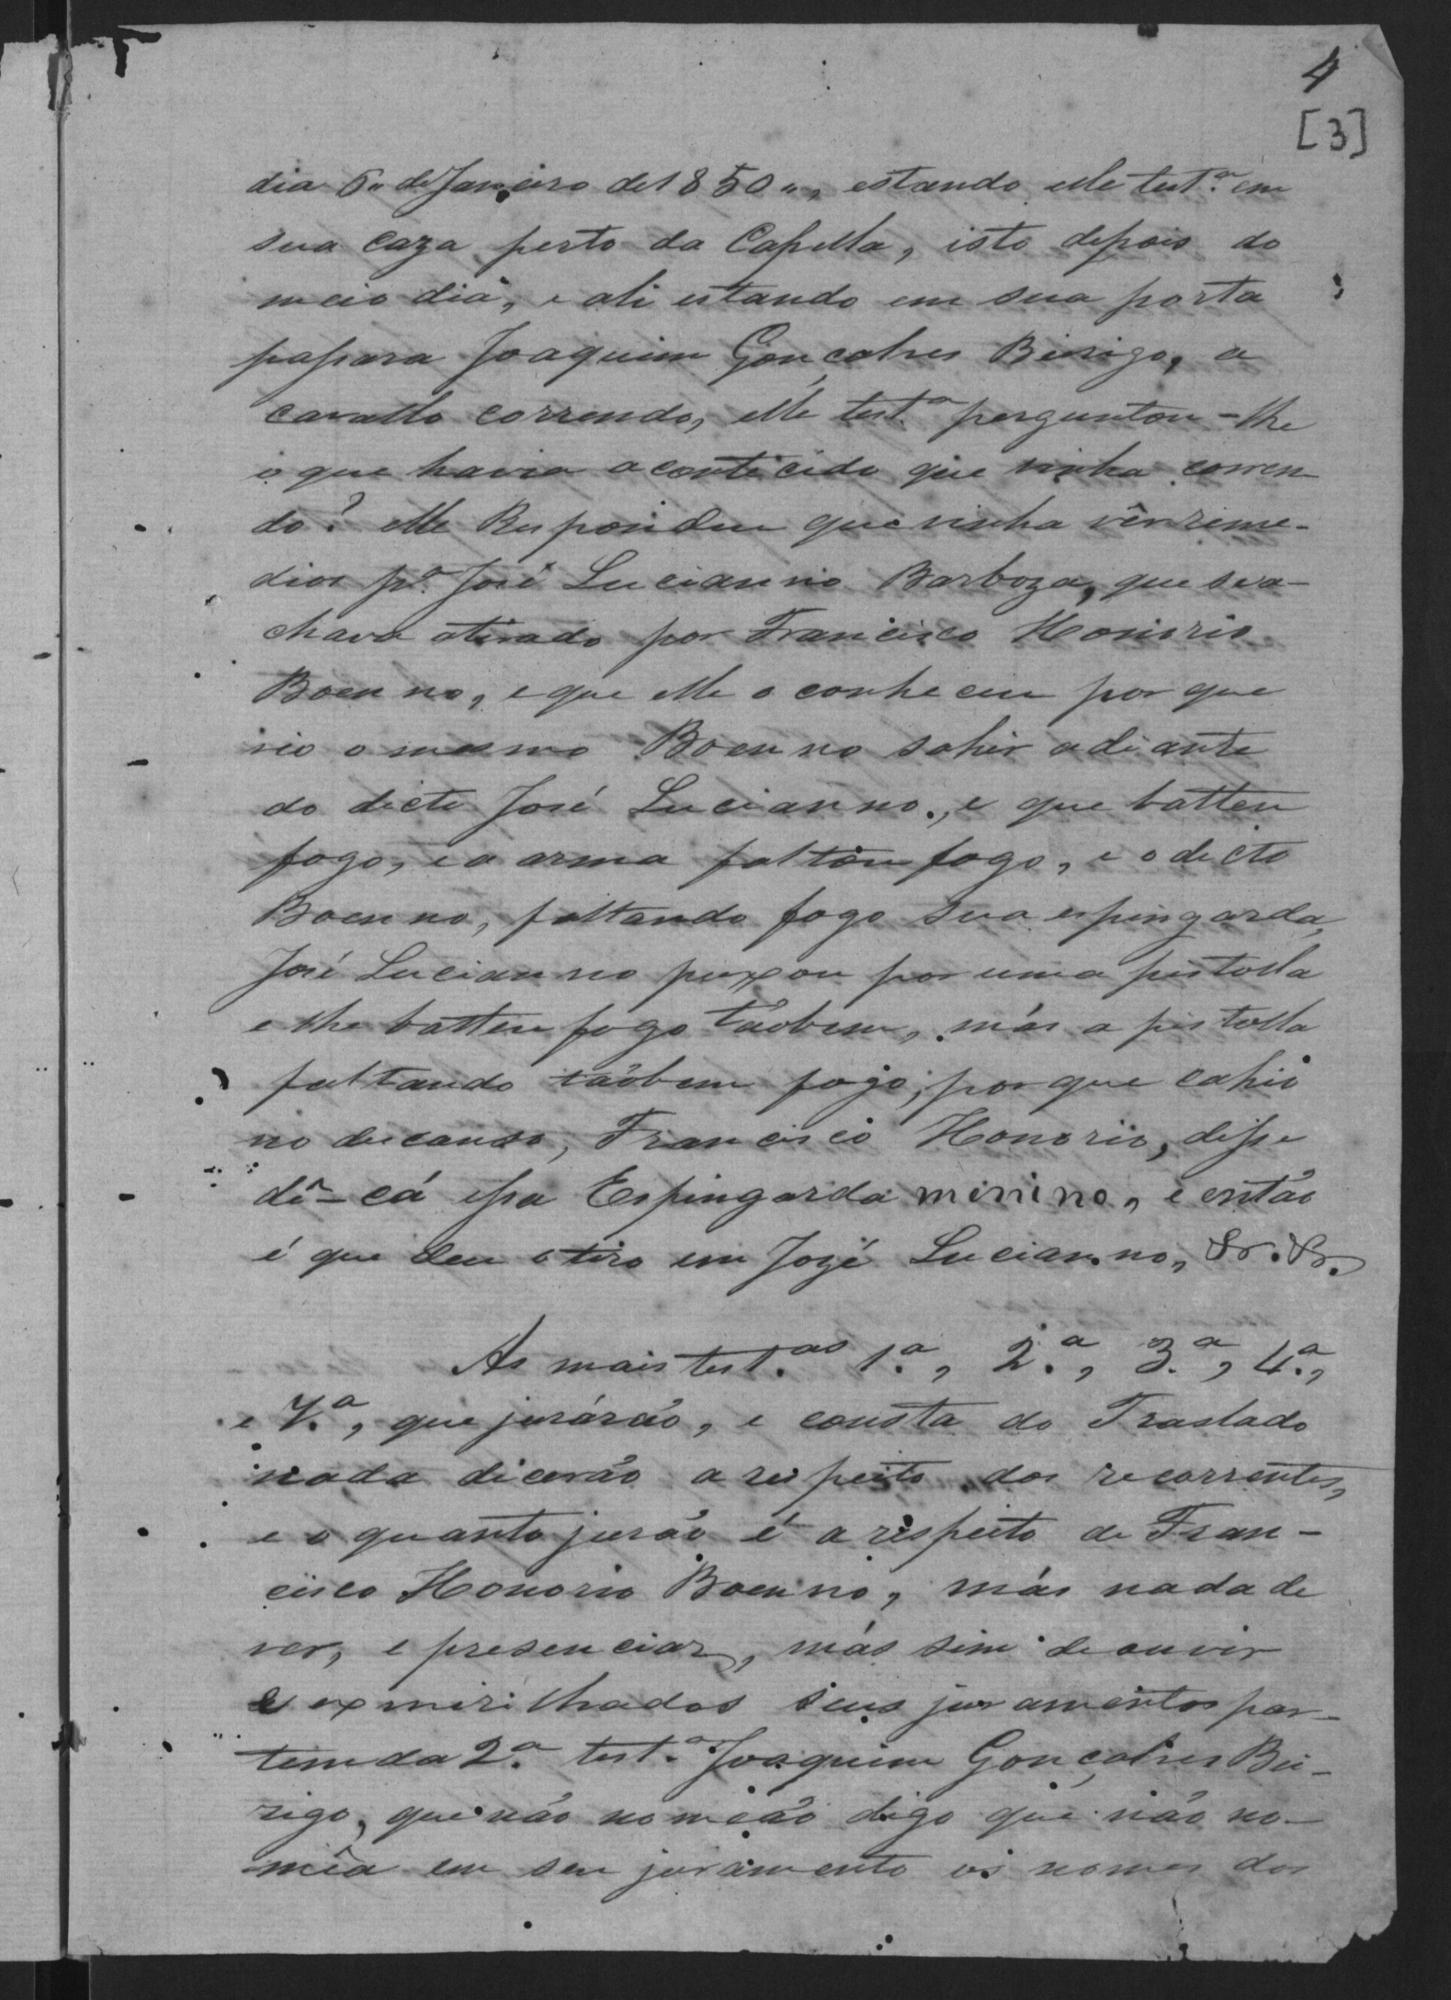 4
[3]
dia 6" de Janeiro de 1850", estando elle test.ª em
sua caza perto da Capella, isto depois do
meio dia, e ali estando em sua porta
passara Joaquim Gonçalves Birigo, a
cavallo correndo, elle test.ª perguntou-lhe
o que havia acontecido que vinha corren
do? elle Respondeu que vinha vêr reme-
dios pª José Lucianno Barboza, que se a-
chava atirado por Francisco Honorio
Boenno, e que elle o conheceu por que
vio o mesmo Boenno sahir adiante
do dicto José Lucianno, e que batteu
fogo, e a arma faltou fogo, e o dicto
Boenno, faltando fogo sua espingarda,
José Lucianno puxou por uma pistolla
e lhe batteu fogo táobem, más a pistolla
faltando táobem fogo, por que cahio
no descanso, Francisco Honorio, disse
dê-cá essa Espingarda menino, e então
é que deu o tiro em Jozé Lucianno, &. &.
As mais test.as 1.ª, 2.ª, 3.ª, 4.ª,
e 7.ª, que jurárão, e consta do Traslado
nada dicerão a respeito dos recorrentes,
e o quanto jurão é a respeito de Fran-
cisco Honorio Boenno, más nada de
ver, e presenciar, más sim de ouvir
e exmirilhados seus juramentos par-
tem da 2.ª test.ª Joaquim Gonçalves Bi-
rigo, que não nomeão digo que não no-
mêa em seu juramento os nomes dos